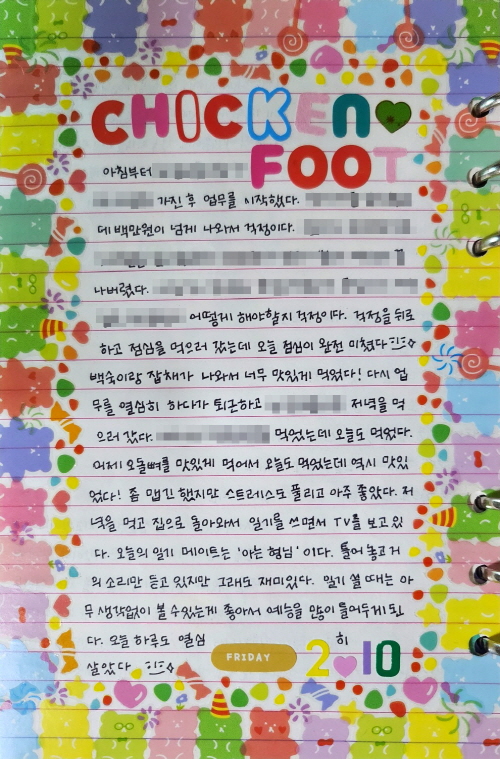 CHICKEN
FOOT
아침부터
가진 후 업무를 시작했다.
데 백만원이 넘게 나와서 걱정이다.
나버렸다.
어떻게 해야할지 걱정이다. 걱정을 뒤로
하고 점심을 먹으러 갔는데 오늘 점심이 완전 미쳤다
백숙이랑 잡채가 나와서 너무 맛있게 먹었다! 다시 업
무를 열심히 하다가 퇴근하고 저녁을 먹
으러 갔다. 먹었는데 오늘도 먹었다.
어제 오돌뼈를 맛있게 먹어서 오늘도 먹었는데 역시 맛있
었다! 좀 맵긴 했지만 스트레스도 풀리고 아주 좋았다. 저
녁을 먹고 집으로 돌아와서 일기를 쓰면서 TV를 보고 있
다. 오늘의 일기 메이트는 '아는 형님' 이다. 틀어 놓고 거
의 소리만 듣고 있지만 그래도 재미있다. 일기 쓸 때는 아
무 생각없이 볼 수 있는게 좋아서 예능을 많이 틀어두게 된
다. 오늘 하루도 열심 히
살았다
FRIDAY 2 10